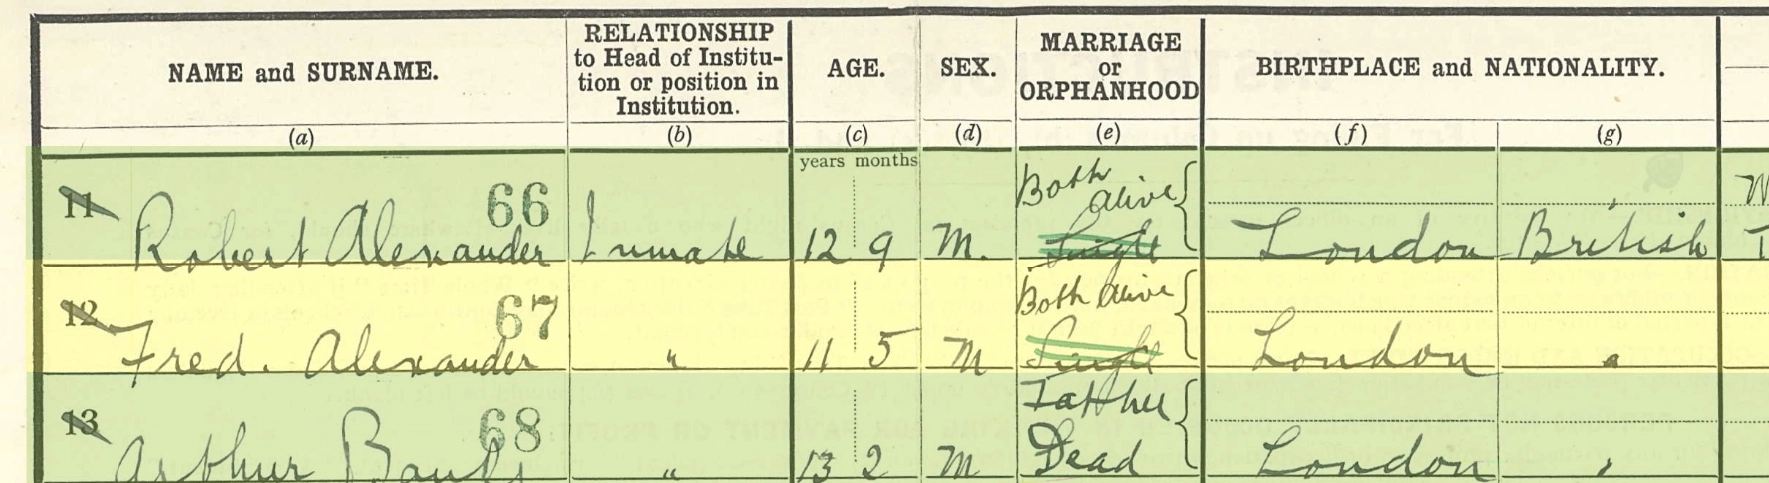 NAME and SURNAME.
RELATIONSHIP
to Head of Institu-
tion or position in
Institution.
AGE.
SEX.
MARRIAGE
or
ORPHANHOOD
BIRTHPLACE and NATIONALITY.
(a) (b) (c) (d) (e) (f) (g)
years months
11 66 Both
alive
Robert Alexander Inmate 12 9 M. Single London British
12 67 Both alive
Fred. Alexander " 11 5 M Single London "
13 68 Father
Arthur " 13 2 M Dead London "